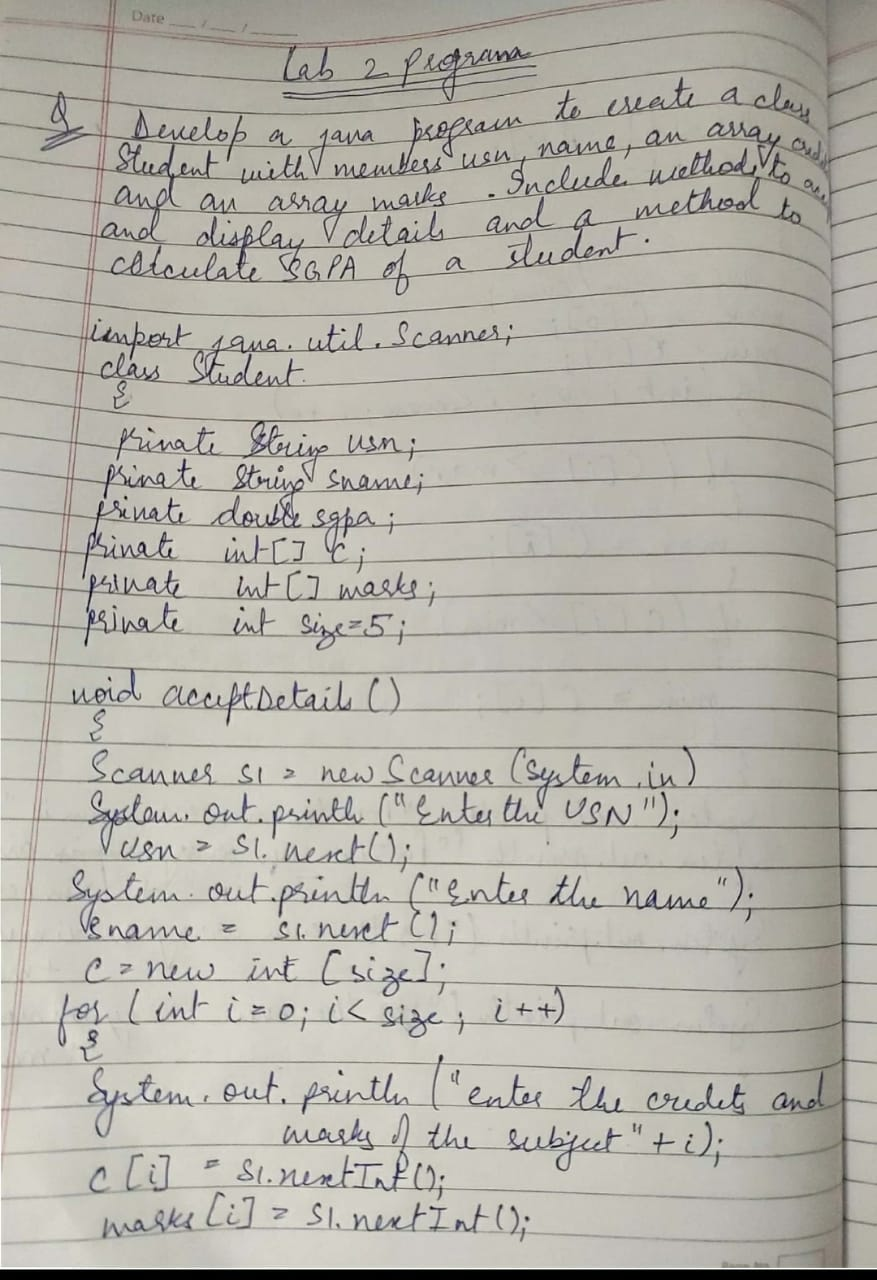 Date
Lab 2 Program
Q Develop a java program to create a class
Student with members usn, name, an array
and an array marks. Include methods to
and display details and a method to
calculate SGPA of a student.
import java.util.Scanner;
class Student.
{
private String usn;
private String sname;
private double sgpa;
private int[] c;
private int[] marks;
private int size=5;
void acceptDetails()
{
Scanner s1 = new Scanner(System.in)
System.out.println("Enter the USN");
usn = s1.next();
System.out.println("Enter the name");
sname = s1.next();
c = new int [size];
for (int i=0; i< size; i++)
{
System.out.println("enter the credits and
marks of the subject"+i);
c[i] = s1.nextInt();
marks[i] = s1.nextInt();